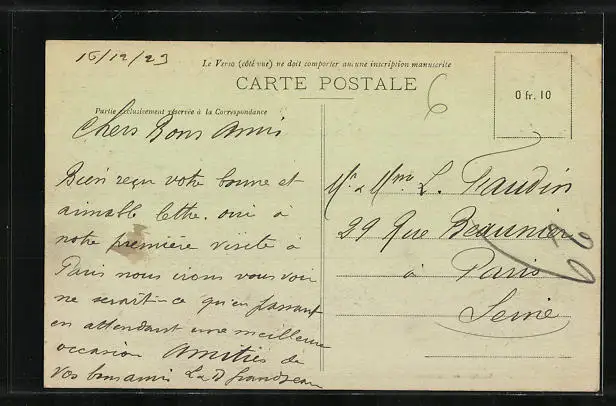 15/12/23
Le Verso (côté vue) ne doit comporter aucune inscription manuscrite
CARTE POSTALE
6
0 fr. 10
Partie exclusivement réservée à la Correspondance
Chers Bons Amis
Bien reçu votre bonne et
aimable lettre. oui à
notre première visite à
Paris nous irons vous voir
ne serait-ce qu'en passant
en attendant une meilleure
occasion Amitiés de
vos bons amis Grandjean
Mr & Mme L. Faudin
29 Rue Beaunier
à Paris
Seine